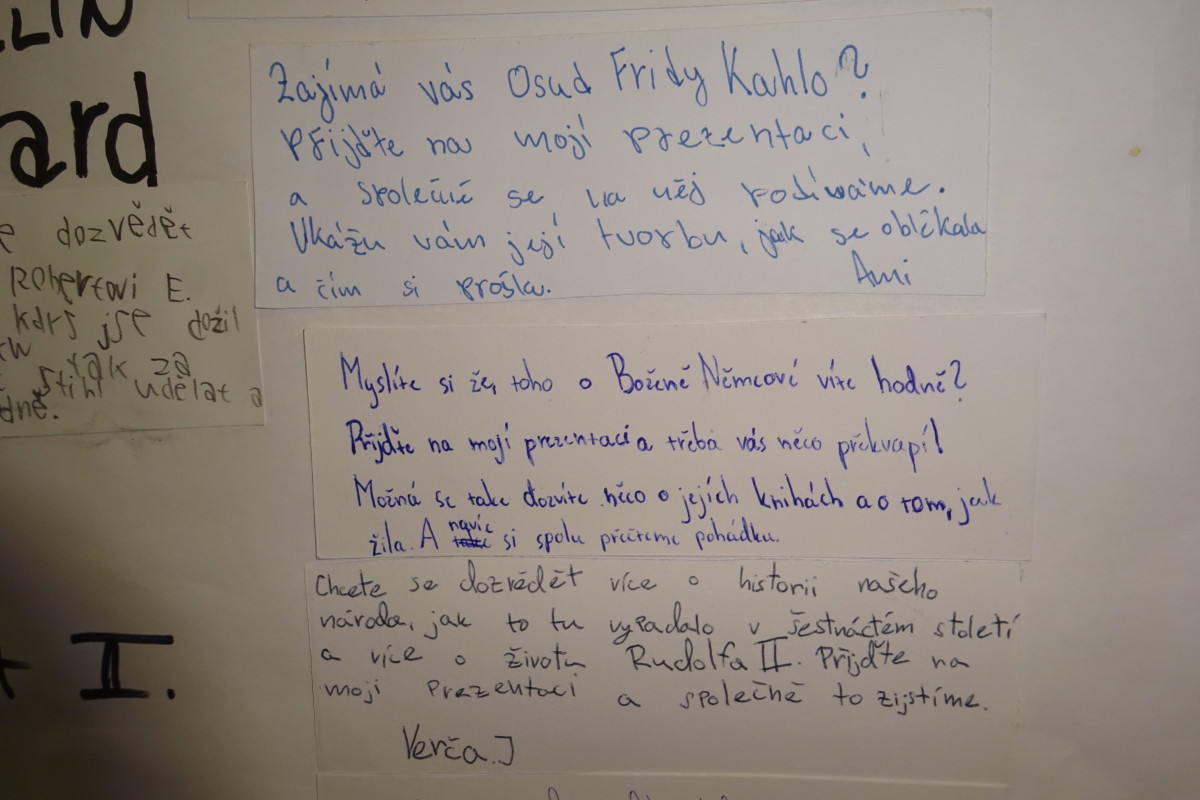 ELIN
ard
e dozvědět
Robertovi E.
jse dožil
tak za
stihl udělat a
dně.
I.
Zajímá vás Osud Fridy Kahlo?
Přijďte na mojí prezentaci,
a společně se na něj podíváme.
Ukážu vám její tvorbu, jak se oblékala
a čím si prošla. Ami
Myslíte si že, toho o Boženě Němcové víte hodně?
Přijďte na mojí prezentaci a třeba vás něco překvapí!
Možná se take dozvíte něco o jejích knihách a o tom, jak
žila. A navíc si spolu přečteme pohádku.
Chcete se dozvědět více o historii našeho
národa, jak to tu vypadalo v šestnáctém století
a více o životu Rudolfa II. Přijďte na
moji Prezentaci a společně to zijstíme.
Verča.J